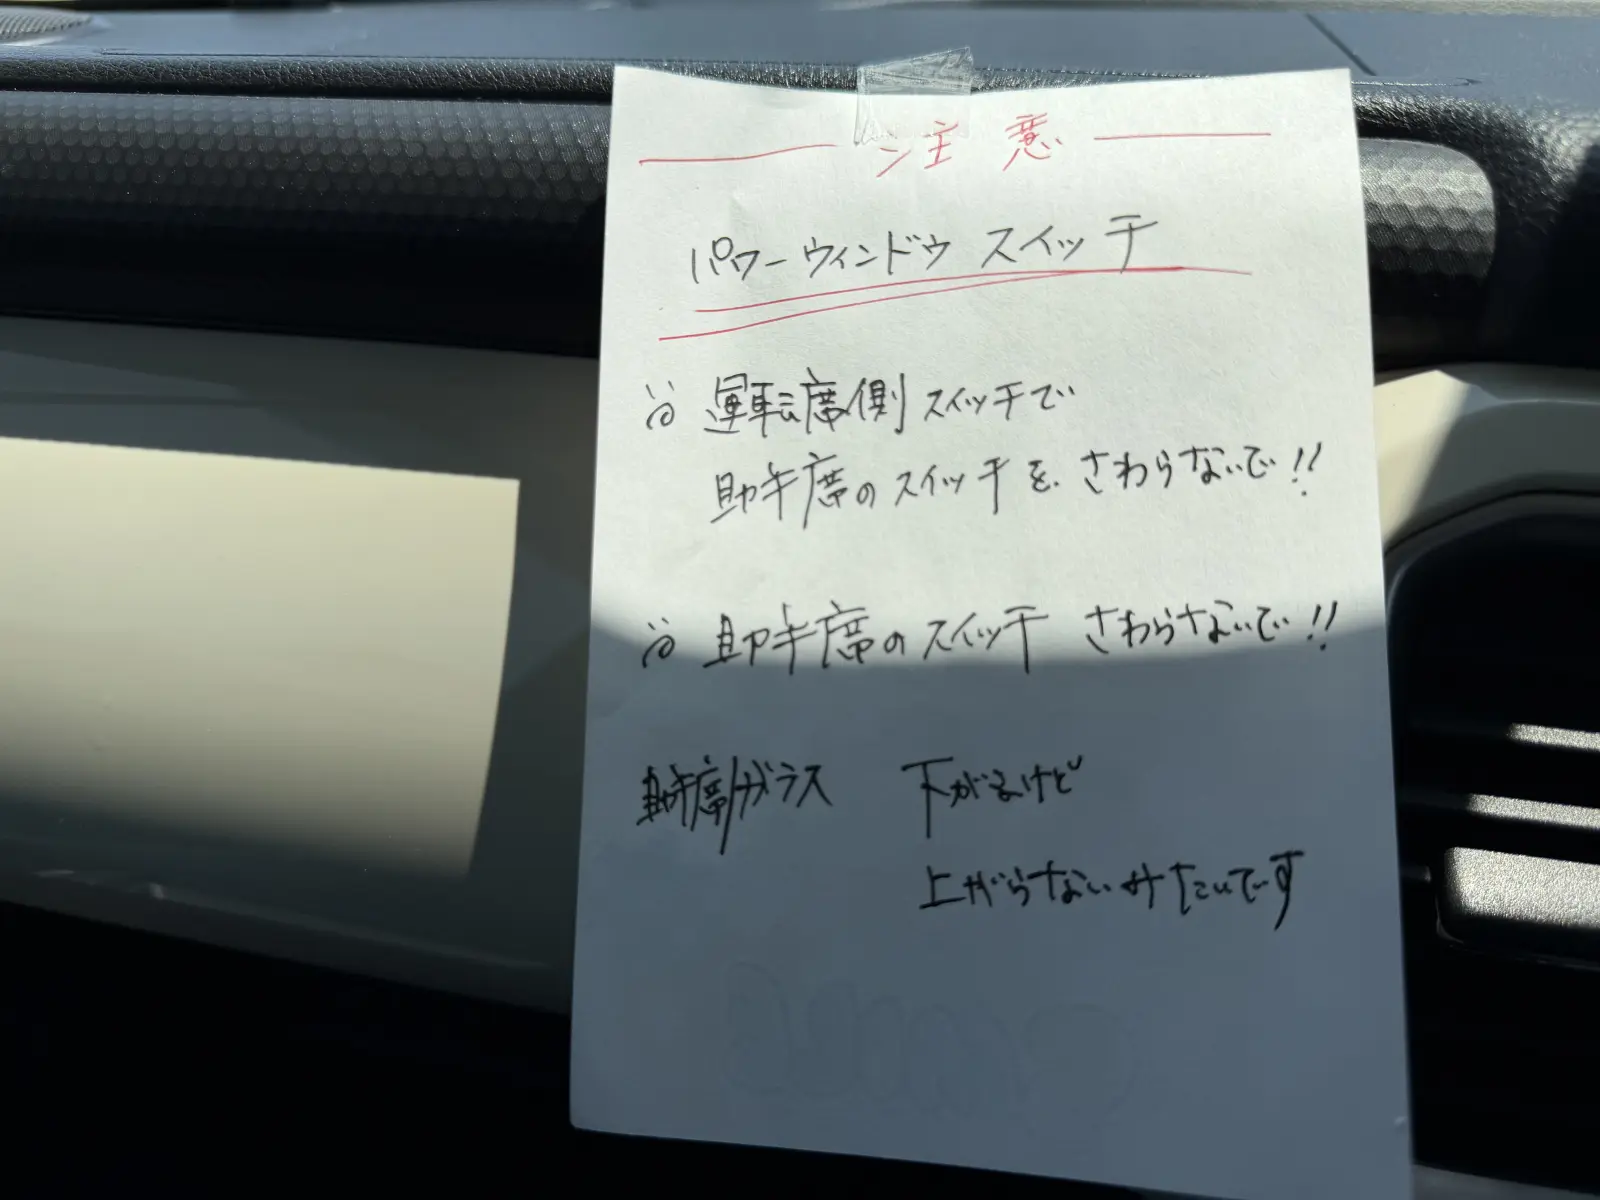 注意
パワーウィンドウ スイッチ
運転席側 スイッチで
助手席のスイッチを さわらないで!!
助手席のスイッチ さわらないで!!
助手席ガラス 下がるけど
上がらないみたいです